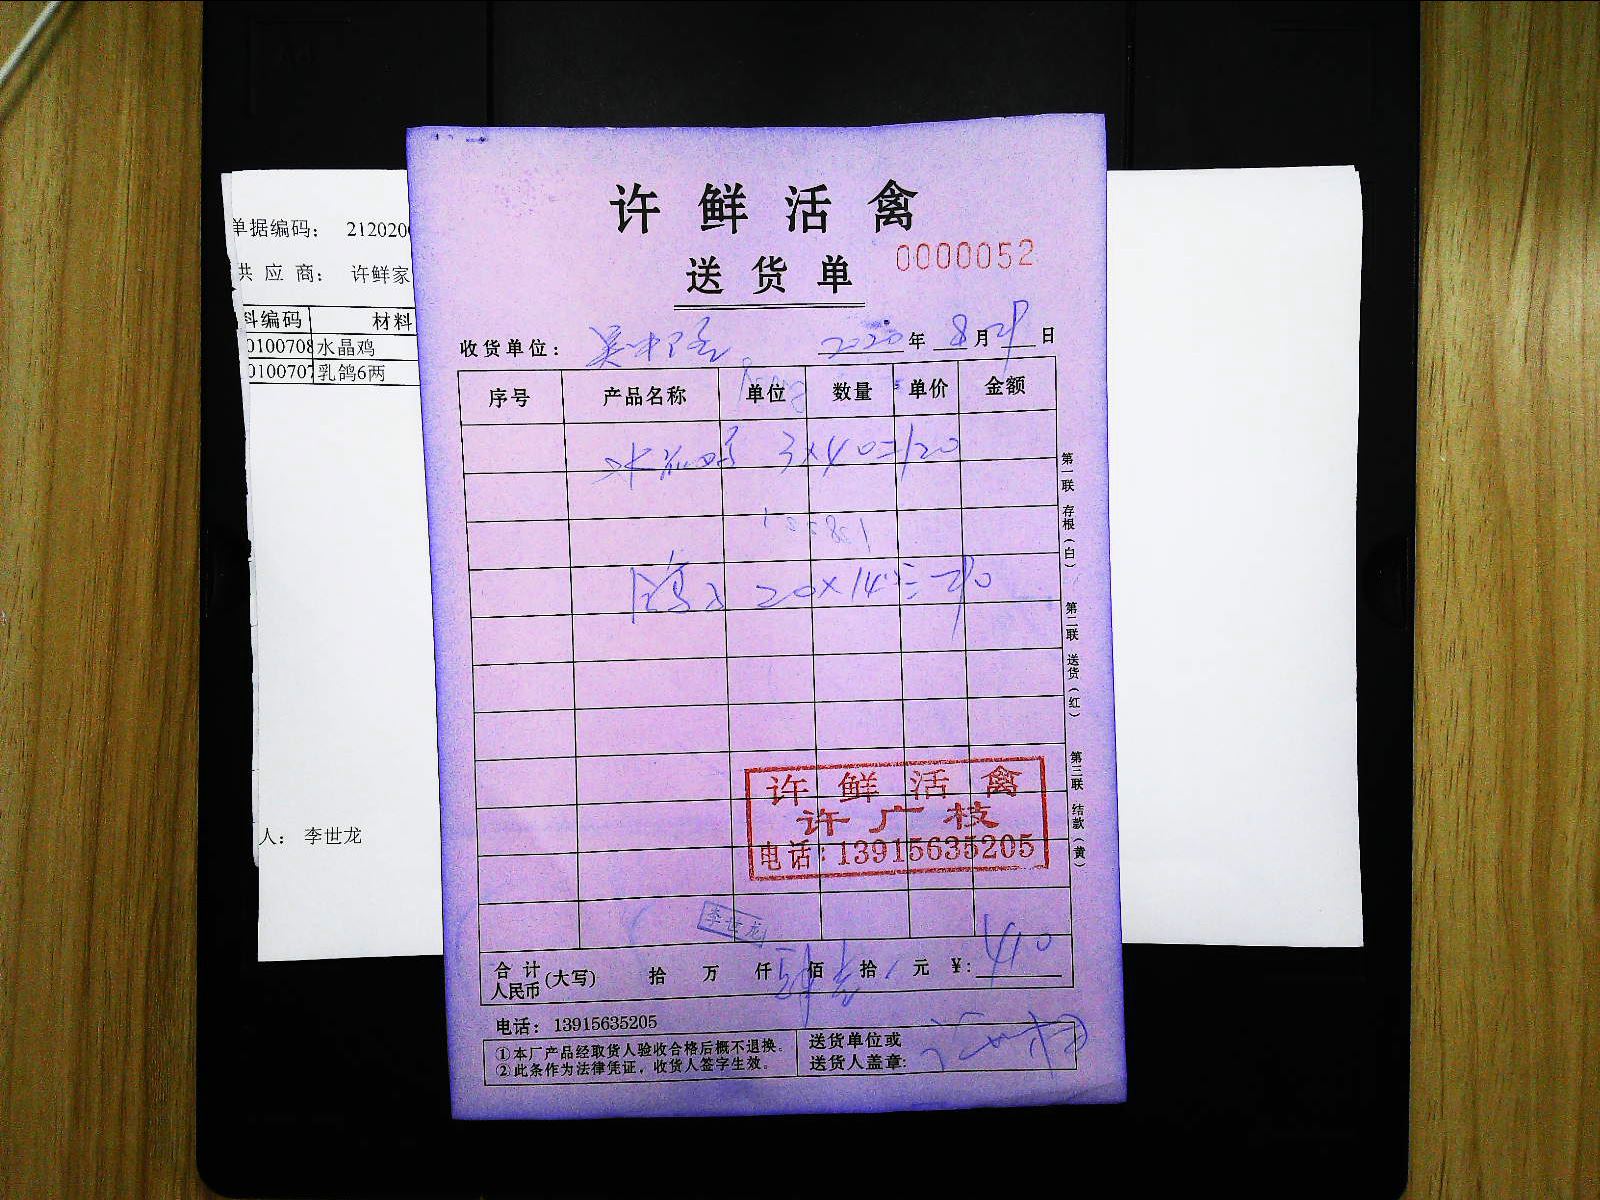 许鲜活禽
送货单
0000052
收货单位：
2020年8月29日
序号 产品名称 单位 数量 单价 金额
水晶鸡 3×40=120
20×14.5=290
第一联 存根（白）
第二联 送货（红）
第三联 结款（黄）
许鲜活禽
许广枝
电话：13915635205
李世龙
合计人民币（大写） 拾 万 仟 肆佰 壹拾 元 ¥：410
电话：13915635205
①本厂产品经取货人验收合格后概不退换。
②此条作为法律凭证，收货人签字生效。
送货单位或
送货人盖章：
单据编码： 212020
供应商： 许鲜家
料编码 材料
0100708 水晶鸡
0100707 乳鸽6两
人： 李世龙